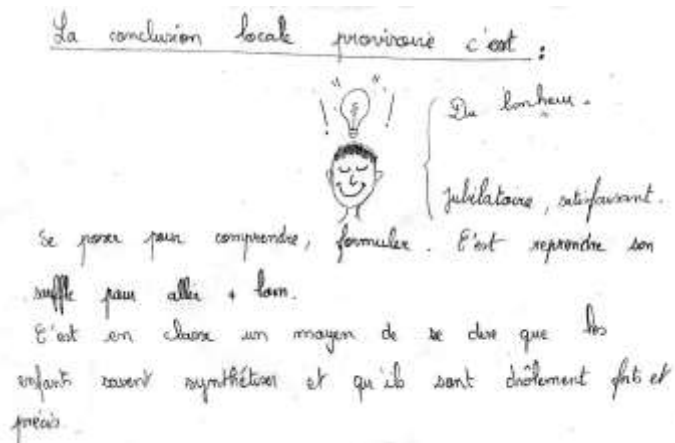 La conclusion locale provisoire c'est :
Du bonheur.
Jubilatoire, satisfaisant.
Se poser pour comprendre, formuler. C'est reprendre son
souffle pour aller + loin.
C'est en classe un moyen de se dire que les
enfants savent synthétiser et qu'ils sont drôlement forts et
précis.